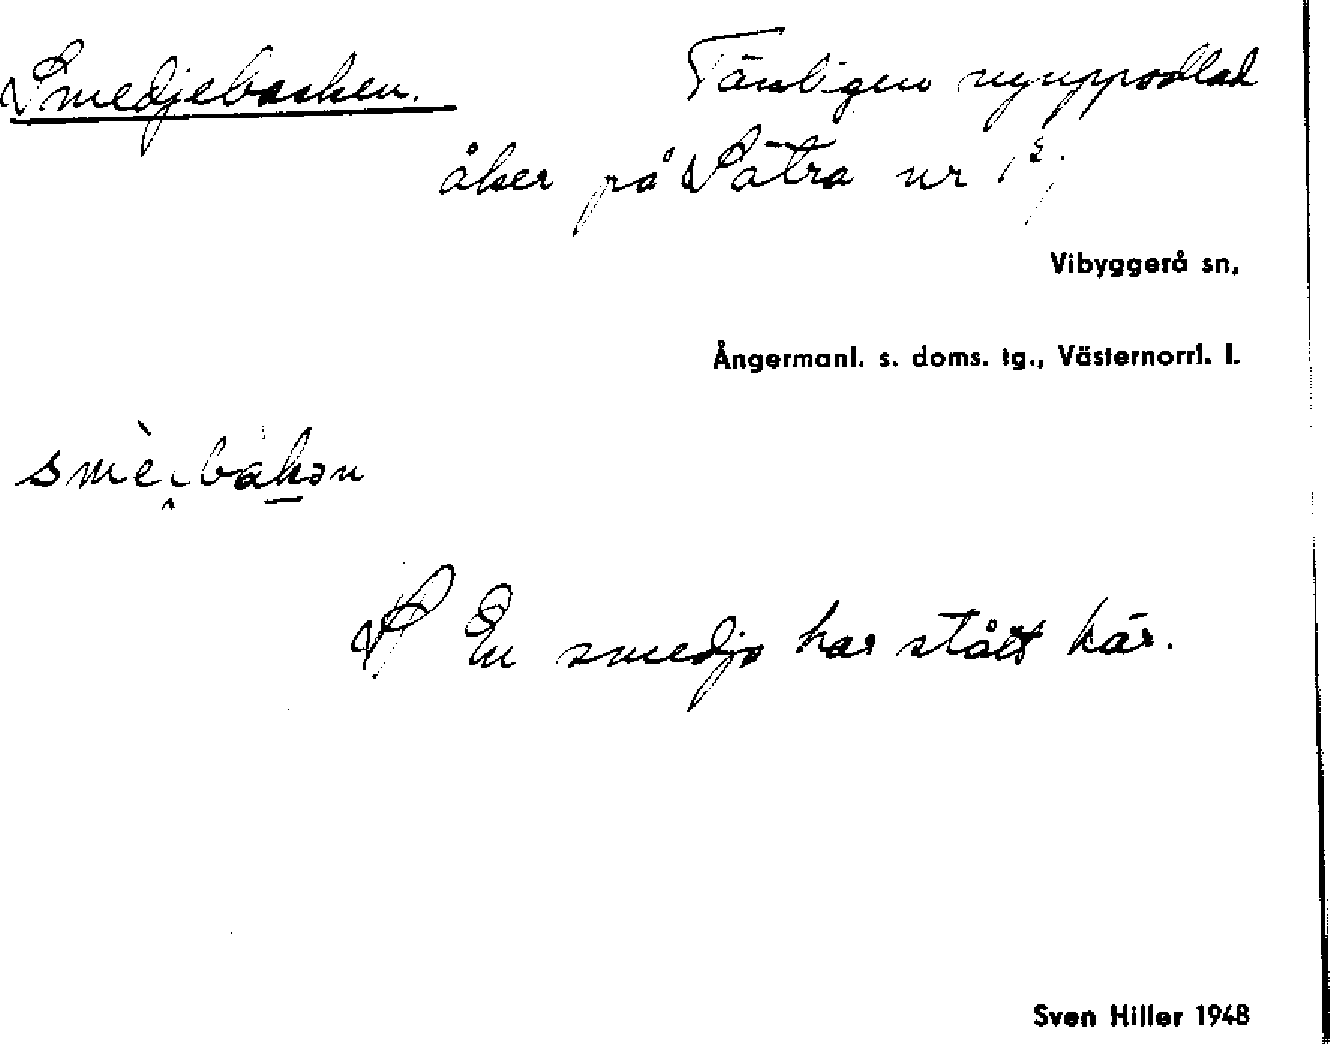 Smedjebacken. Tämligen nyuppodlad
åker på Sätra nr 1²;
Vibyggerå sn,
Ångermanl. s. doms. tg., Västernorrl. l.
S En smedja har stått här.
Sven Hiller 1948